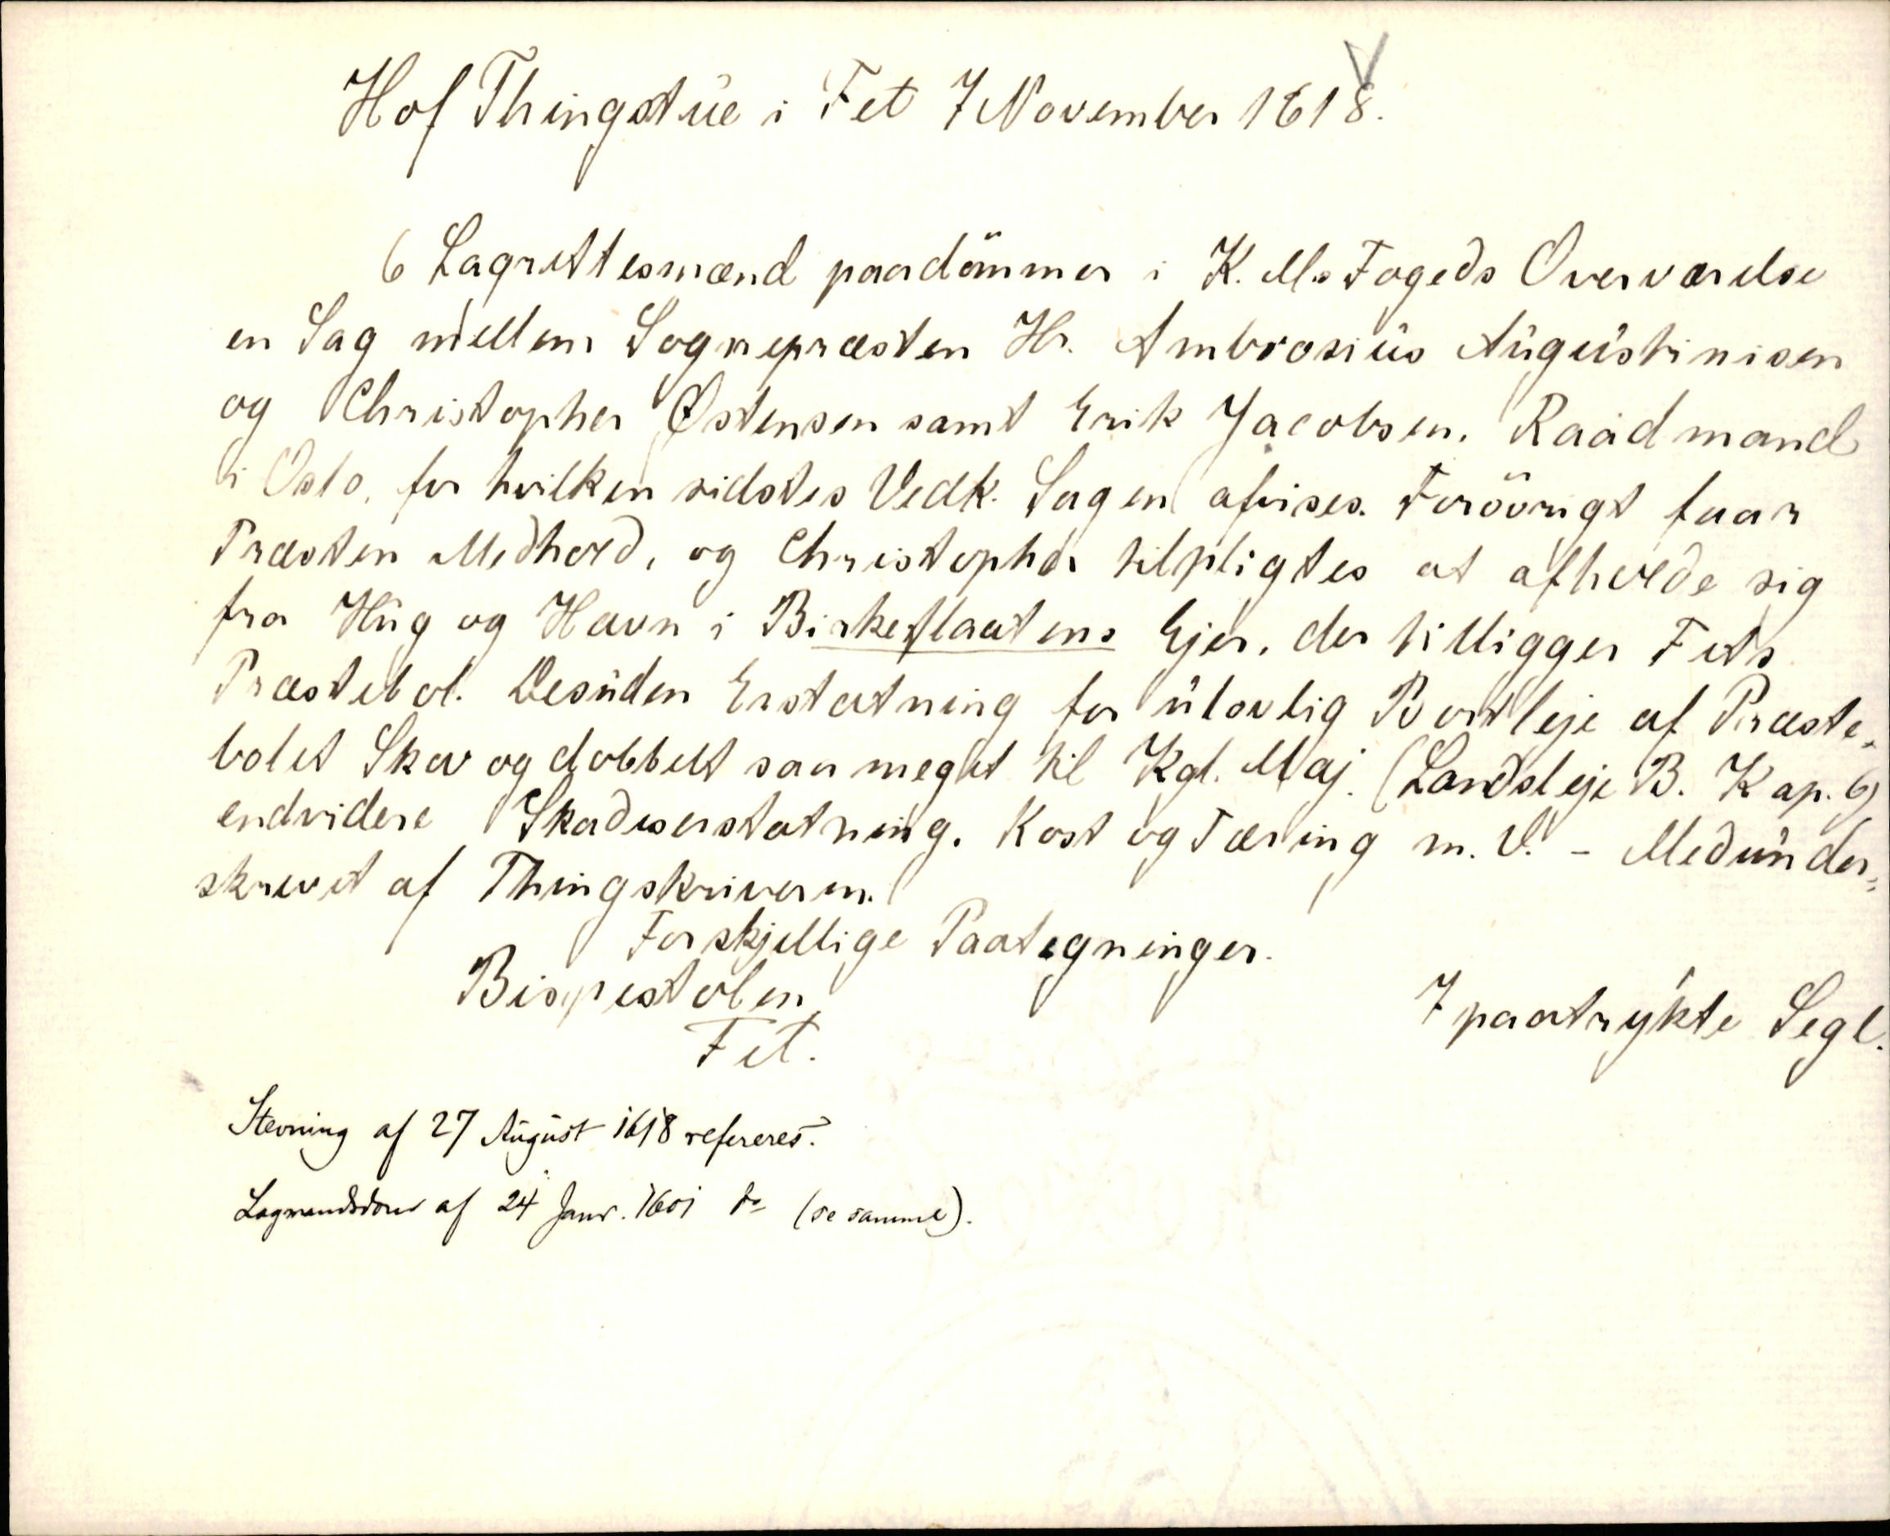 Hof Thingstue i Fet 7 November 1618.
6 Lagrettesmænd paadömmer i K. Ms Fogeds Overværelse
en Sag mellem Sognepræsten Hr. Ambrosius Augustinisen
og Christopher Østensen samt Erik Jacobsen, Raadmand
i Oslo, for hvilken sidstes Vedk. Sagen afvises. Forövrigt faar
Præsten Medhold, og Christopher tilpligtes at afholde sig
fra Hug og Havn i Birkeflaatens Ejer, der tilligger Fets
Præstebol. Desuden Erstatning for ulovlig Bortleje af Præste-
bolet Skov og dobbelt saa meget til Kgl. Maj. (Landsleje B. Kap. 6)
endvidere Skadeserstatning, Kost og Tæring m. V. - Medunder-
skrevet af Thingskriveren.
Forskjellige Paategninger.
Bispestolen
Fet.
7 paatrykte Segl.
Stevning af 27 August 1618 refereres.
Lagmandsdom af 24 Janr. 1601 do (se samme).